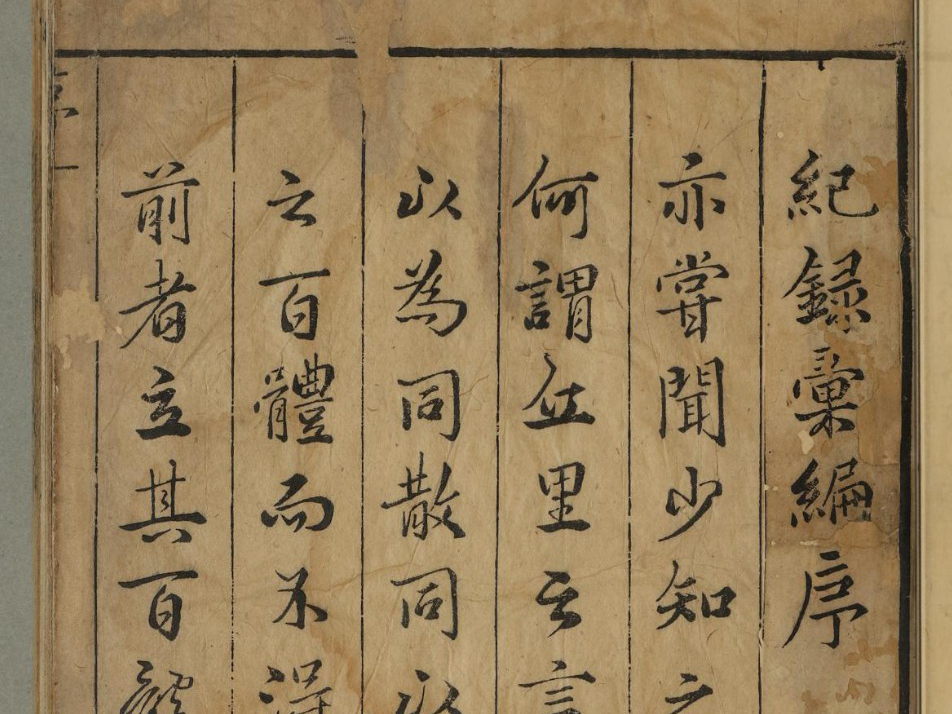 紀録彙編序
亦嘗聞少知之
何謂丘里之言
以為同散同以
之百體而不得
前者立其百體
序 一